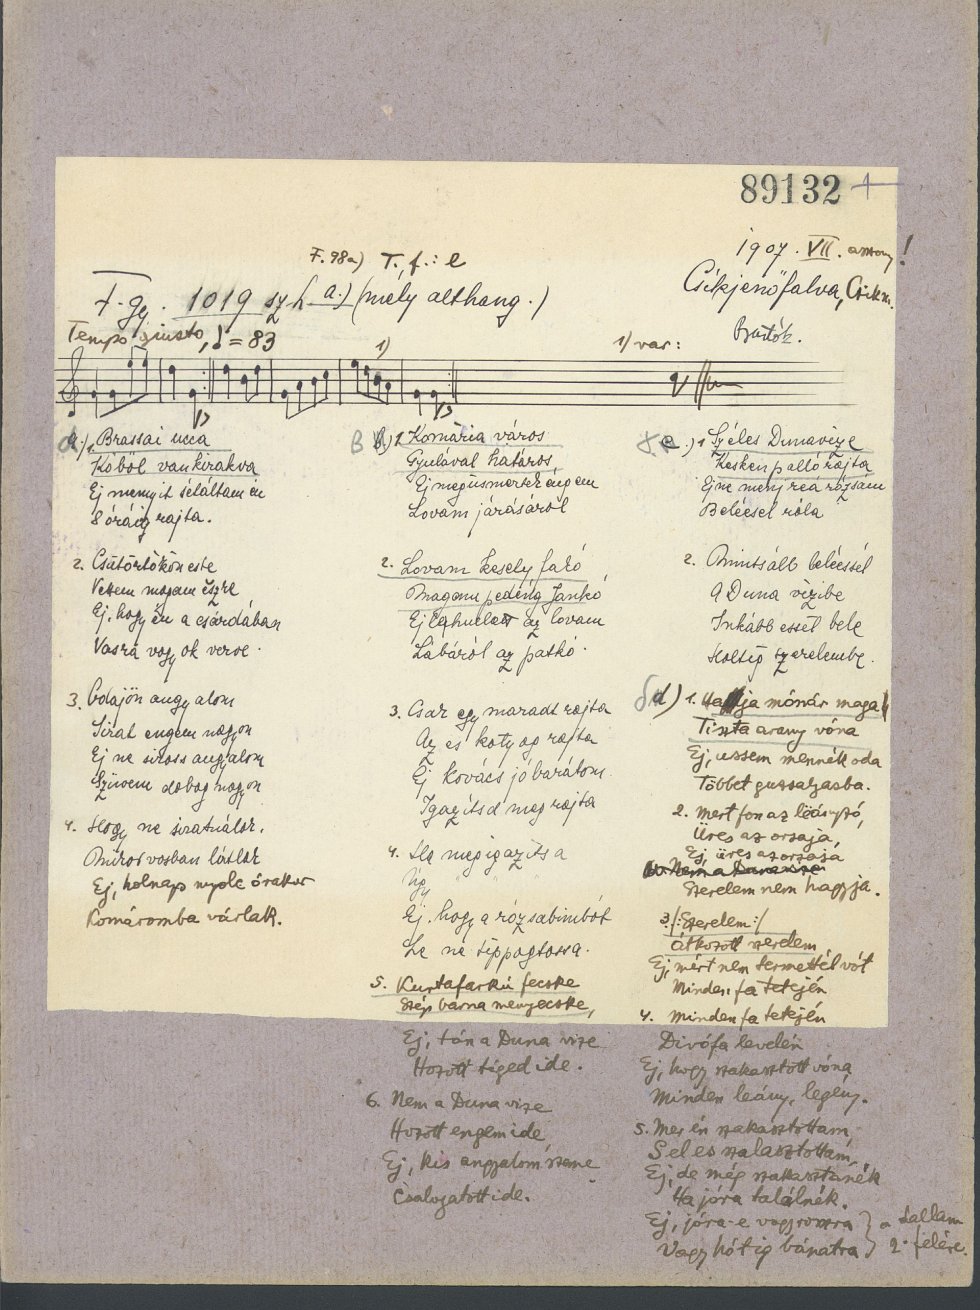 89132
1907. VII. asszony!
F. 98a) T. f.: e
Csíkjenőfalva, Csík m.
F. gy. 1019 sz h a.) (mély althang.)
Bartók.
Tempo giusto, ♩ = 83
1)
1) var:
a.) 1. Brassai ucca
Kőből van kirakva
Ej mennyit sétáltam én
8 óráig rajta.
2. Csütörtökön este
Vettem magam észre
Ej, hogy én a csárdában
Vasra vagyok verve.
3. Odajön angyalom
Sirat engem nagyon
Ej ne sirass angyalom
Szüvem dobog nagyon
4. Hogy ne siratnálak,
Mikor vasban látlak
Ej, holnap nyolc órakor
Komáromba várlak.
B b.) 1. Komária város
Gyulával határos,
Ej megüsmertek éngem
Lovam járásáról
2. Lovam kesely faró
Magam pedéng Jankó
Ej lehullott az lovam
Lábáról az patkó.
3. Csak egy maradt rajta
Az es kotyog rajta
Ej kovács jóbarátom
Igazítsd meg rajta
4. Ha megigazítsa
Úgy " "
Ej. hogy a rózsabimbót
Le ne tippogtassa.
5. Kurtafarkú fecske
Szép barna menyecske,
Ej, tán a Duna vize
Hozott téged ide.
6. Nem a Duna vize
Hozott engem ide,
Ej, kis angyalom szeme
Csalogatott ide.
c.) 1 Széles Dunavize
Kesken palló rajta
Ej ne menj reá rózsám
Beleesel róla
2. Mintsább beleessél
A Duna vizibe
Inkább essél bele
Holtig szerelembe.
d) 1. Hallja mónár maga
Tiszta arany vóna
Ej, ussem mennék oda
Többet guzsalyasba.
2. Mert fon az leányzó,
Üres az orsaja,
Ej, üres az orsaja
Szerelem nem hagyja.
3. /: Szerelem :/
Átkozott szerelem
Ej, mért nem termettél vót
Minden fa tetején
4. Minden fa tetején
Diófa levelén
Ej, hogy szakasztott vóna
Minden leány, legény.
5. Mer én szakasztottam,
S el es szalasztottam,
Ej, de még szakasztanék
Ha jóra találnék.
Ej, jóra-e vagy rosszra
Vagy hótig bánatra } a dallam
2. felére.